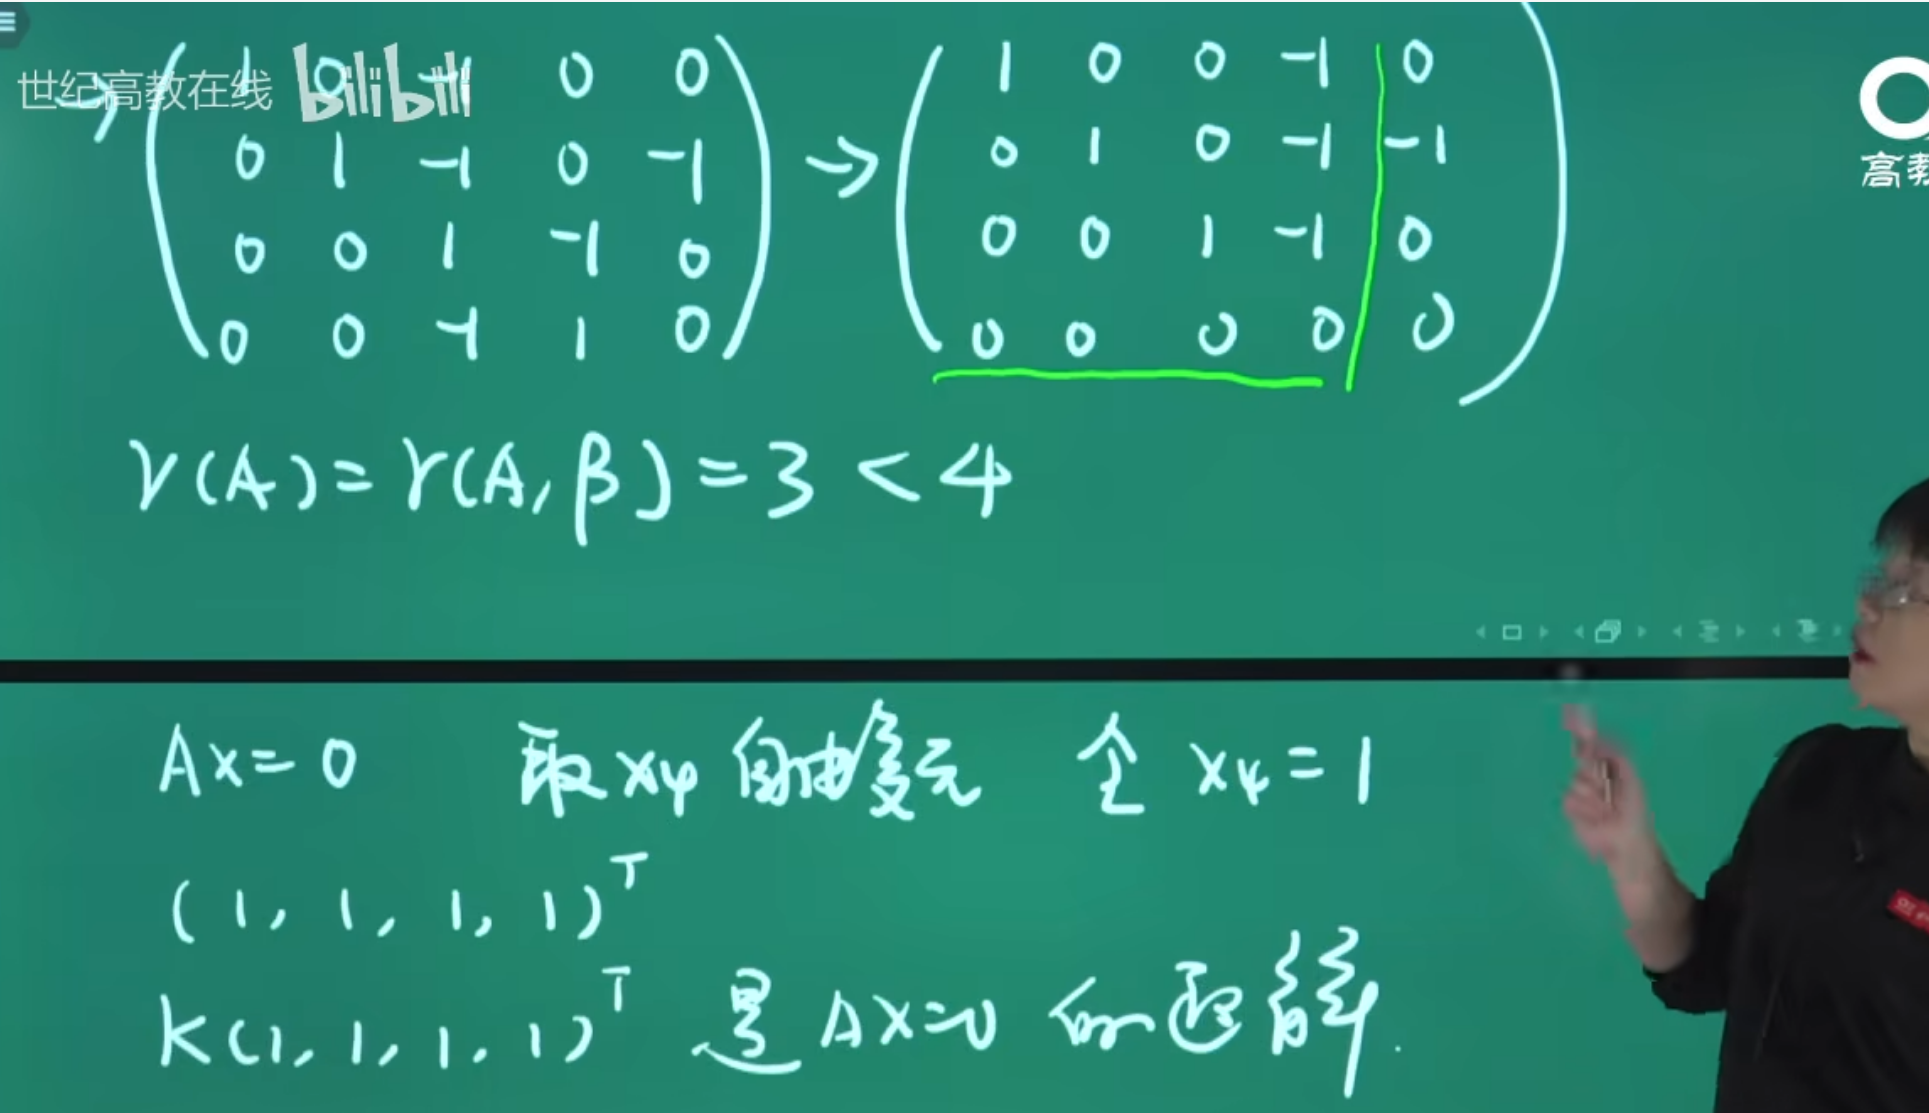 世纪高教在线 bilibili
→ ( 1 0 -1 0 0 ) → ( 1 0 0 -1 | 0 )
( 0 1 -1 0 -1 ) ( 0 1 0 -1 | -1 )
( 0 0 1 -1 0 ) ( 0 0 1 -1 | 0 )
( 0 0 -1 1 0 ) ( 0 0 0 0 | 0 )
高教
r(A) = r(A, β) = 3 < 4
Ax = 0 取 x4 自由变元 令 x4 = 1
(1, 1, 1, 1)ᵀ
k(1, 1, 1, 1)ᵀ 是 Ax=0 的通解.